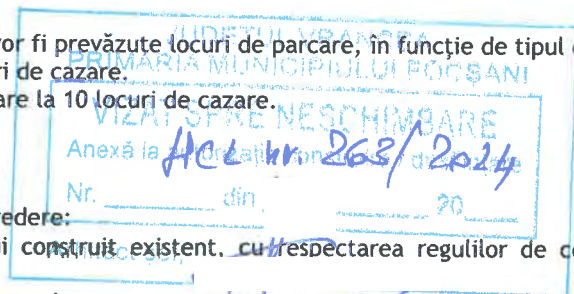 JUDEȚUL VRANCEA
or fi prevăzute locuri de parcare, în funcție de tipul
PRIMĂRIA MUNICIPIULUI FOCȘANI
ri de cazare.
are la 10 locuri de cazare.
VIZAT SPRE NESCHIMBARE
Anexă la
HCL nr. 263/2024
Nr. din 20
edere:
i construit existent, cu respectarea regulilor de c